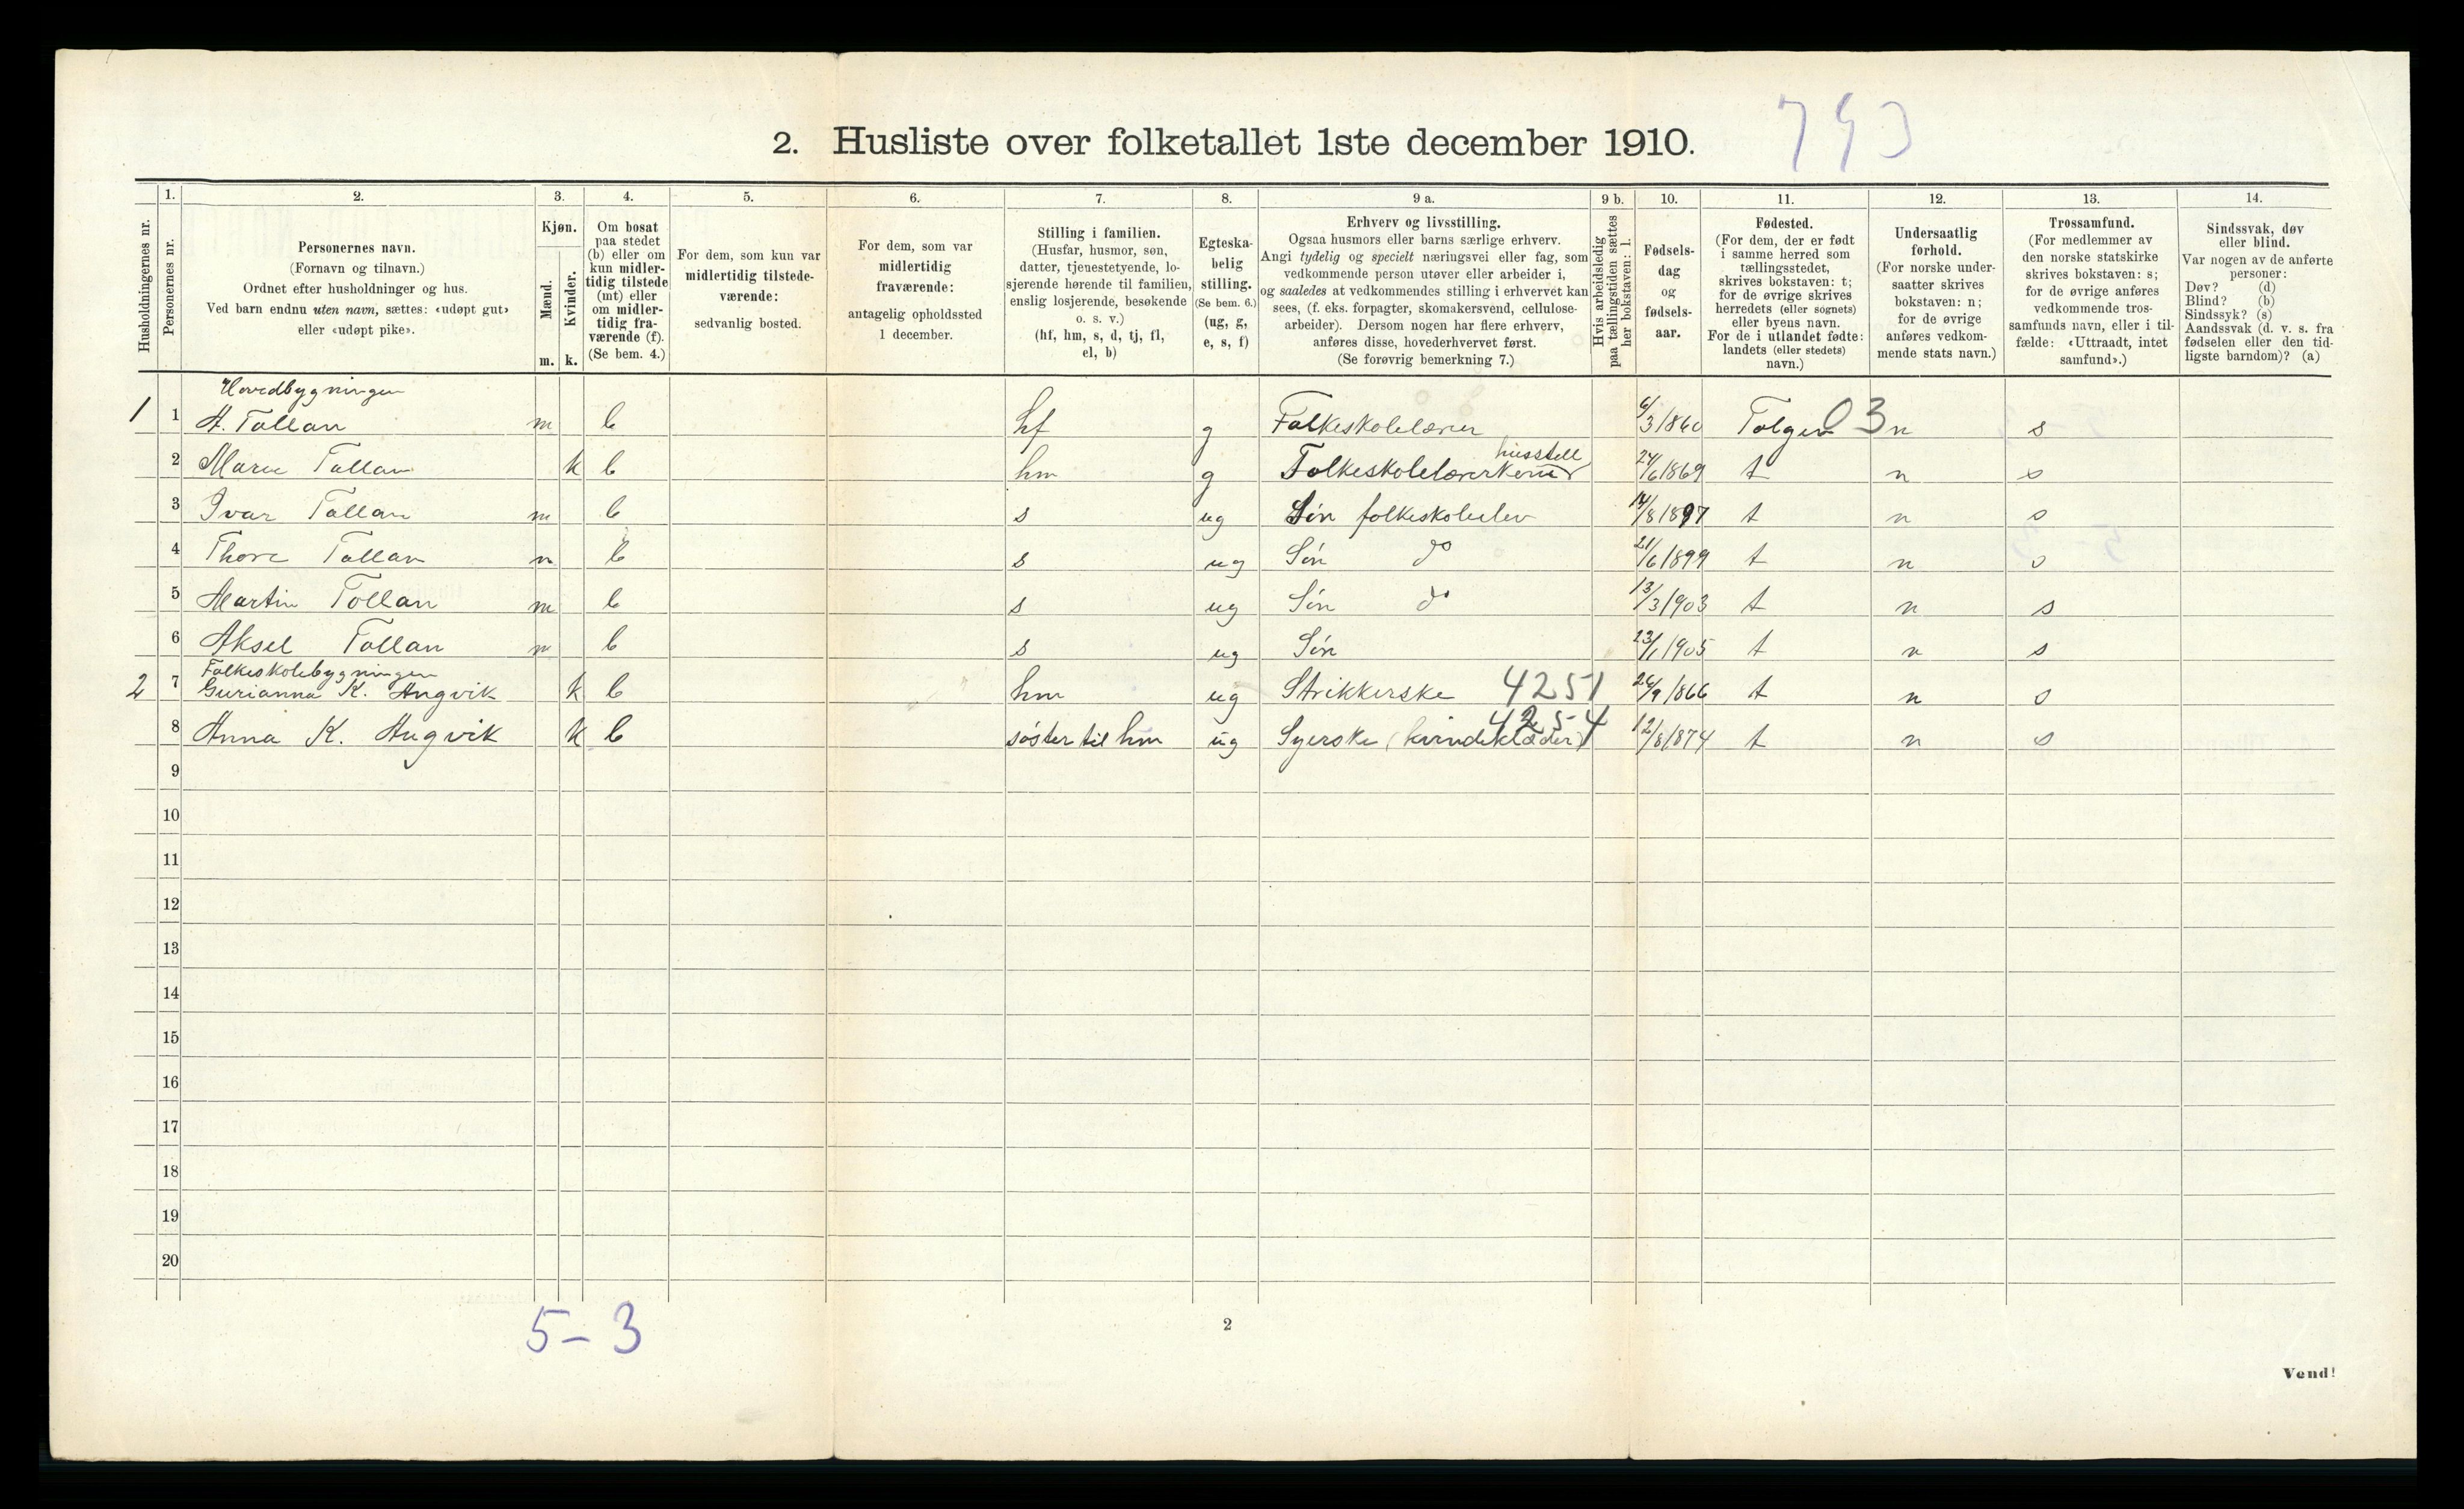 793
2. Husliste over folketallet 1ste december 1910.
Husholdningernes nr.
1.
Personernes nr.
2.
Personernes navn.
(Fornavn og tilnavn.)
Ordnet efter husholdninger og hus.
Ved barn endnu uten navn, sættes: «udøpt gut»
eller «udøpt pike».
3.
Kjøn.
Mænd.
Kvinder.
m. k.
4.
Om bosat
paa stedet
(b) eller om
kun midler-
tidig tilstede
(mt) eller
om midler-
tidig fra-
værende (f).
(Se bem. 4.)
5.
For dem, som kun var
midlertidig tilstede-
værende:
sedvanlig bosted.
6.
For dem, som var
midlertidig
fraværende:
antagelig opholdssted
1 december.
7.
Stilling i familien.
(Husfar, husmor, søn,
datter, tjenestetyende, lo-
sjerende hørende til familien,
enslig losjerende, besøkende
o. s. v.)
(hf, hm, s, d, tj, fl,
el, b)
8.
Egteska-
belig
stilling.
(Se bem. 6.)
(ug, g,
e, s, f)
9 a.
Erhverv og livsstilling.
Ogsaa husmors eller barns særlige erhverv.
Angi tydelig og specielt næringsvei eller fag, som
vedkommende person utøver eller arbeider i,
og saaledes at vedkommendes stilling i erhvervet kan
sees, (f. eks. forpagter, skomakersvend, cellulose-
arbeider). Dersom nogen har flere erhverv,
anføres disse, hovederhvervet først.
(Se forøvrig bemerkning 7.)
9 b.
Hvis arbeidsledig
paa tællingstiden sættes
her bokstaven: l.
10.
Fødsels-
dag
og
fødsels-
aar.
11.
Fødested.
(For dem, der er født
i samme herred som
tællingsstedet,
skrives bokstaven: t;
for de øvrige skrives
herredets (eller sognets)
eller byens navn.
For de i utlandet fødte:
landets (eller stedets)
navn.)
12.
Undersaatlig
forhold.
(For norske under-
saatter skrives
bokstaven: n;
for de øvrige
anføres vedkom-
mende stats navn.)
13.
Trossamfund.
(For medlemmer av
den norske statskirke
skrives bokstaven: s;
for de øvrige anføres
vedkommende tros-
samfunds navn, eller i til-
fælde: «Uttraadt, intet
samfund».)
14.
Sindssvak, døv
eller blind.
Var nogen av de anførte
personer:
Døv? (d)
Blind? (b)
Sindssyk? (s)
Aandssvak (d. v. s. fra
fødselen eller den tid-
ligste barndom)? (a)
Hovedbygningen
1 1 A. Tollan m b hf g Folkeskolelærer 6/3 1860 Tolgen 03 n s
husstell
2 Marie Tollan k b hm g Folkeskolelærerkone 24/6 1869 t n s
3 Ivar Tollan m b s ug Søn folkeskoleelev 14/8 1897 t n s
4 Thore Tollan m b s ug Søn do 21/6 1899 t n s
5 Martin Tollan m b s ug Søn do 13/3 1903 t n s
6 Aksel Tollan m b s ug Søn 23/1 1905 t n s
Folkeskolebygningen
2 7 Gurianna K. Angvik k b hm ug Strikkerske 4251 26/9 1866 t n s
8 Anna K. Angvik k b søster til hm ug Syerske (kvindeklæder) 4254 12/8 1874 t n s
9
10
11
12
13
14
15
16
17
18
19
20
5-3
2
Vend!